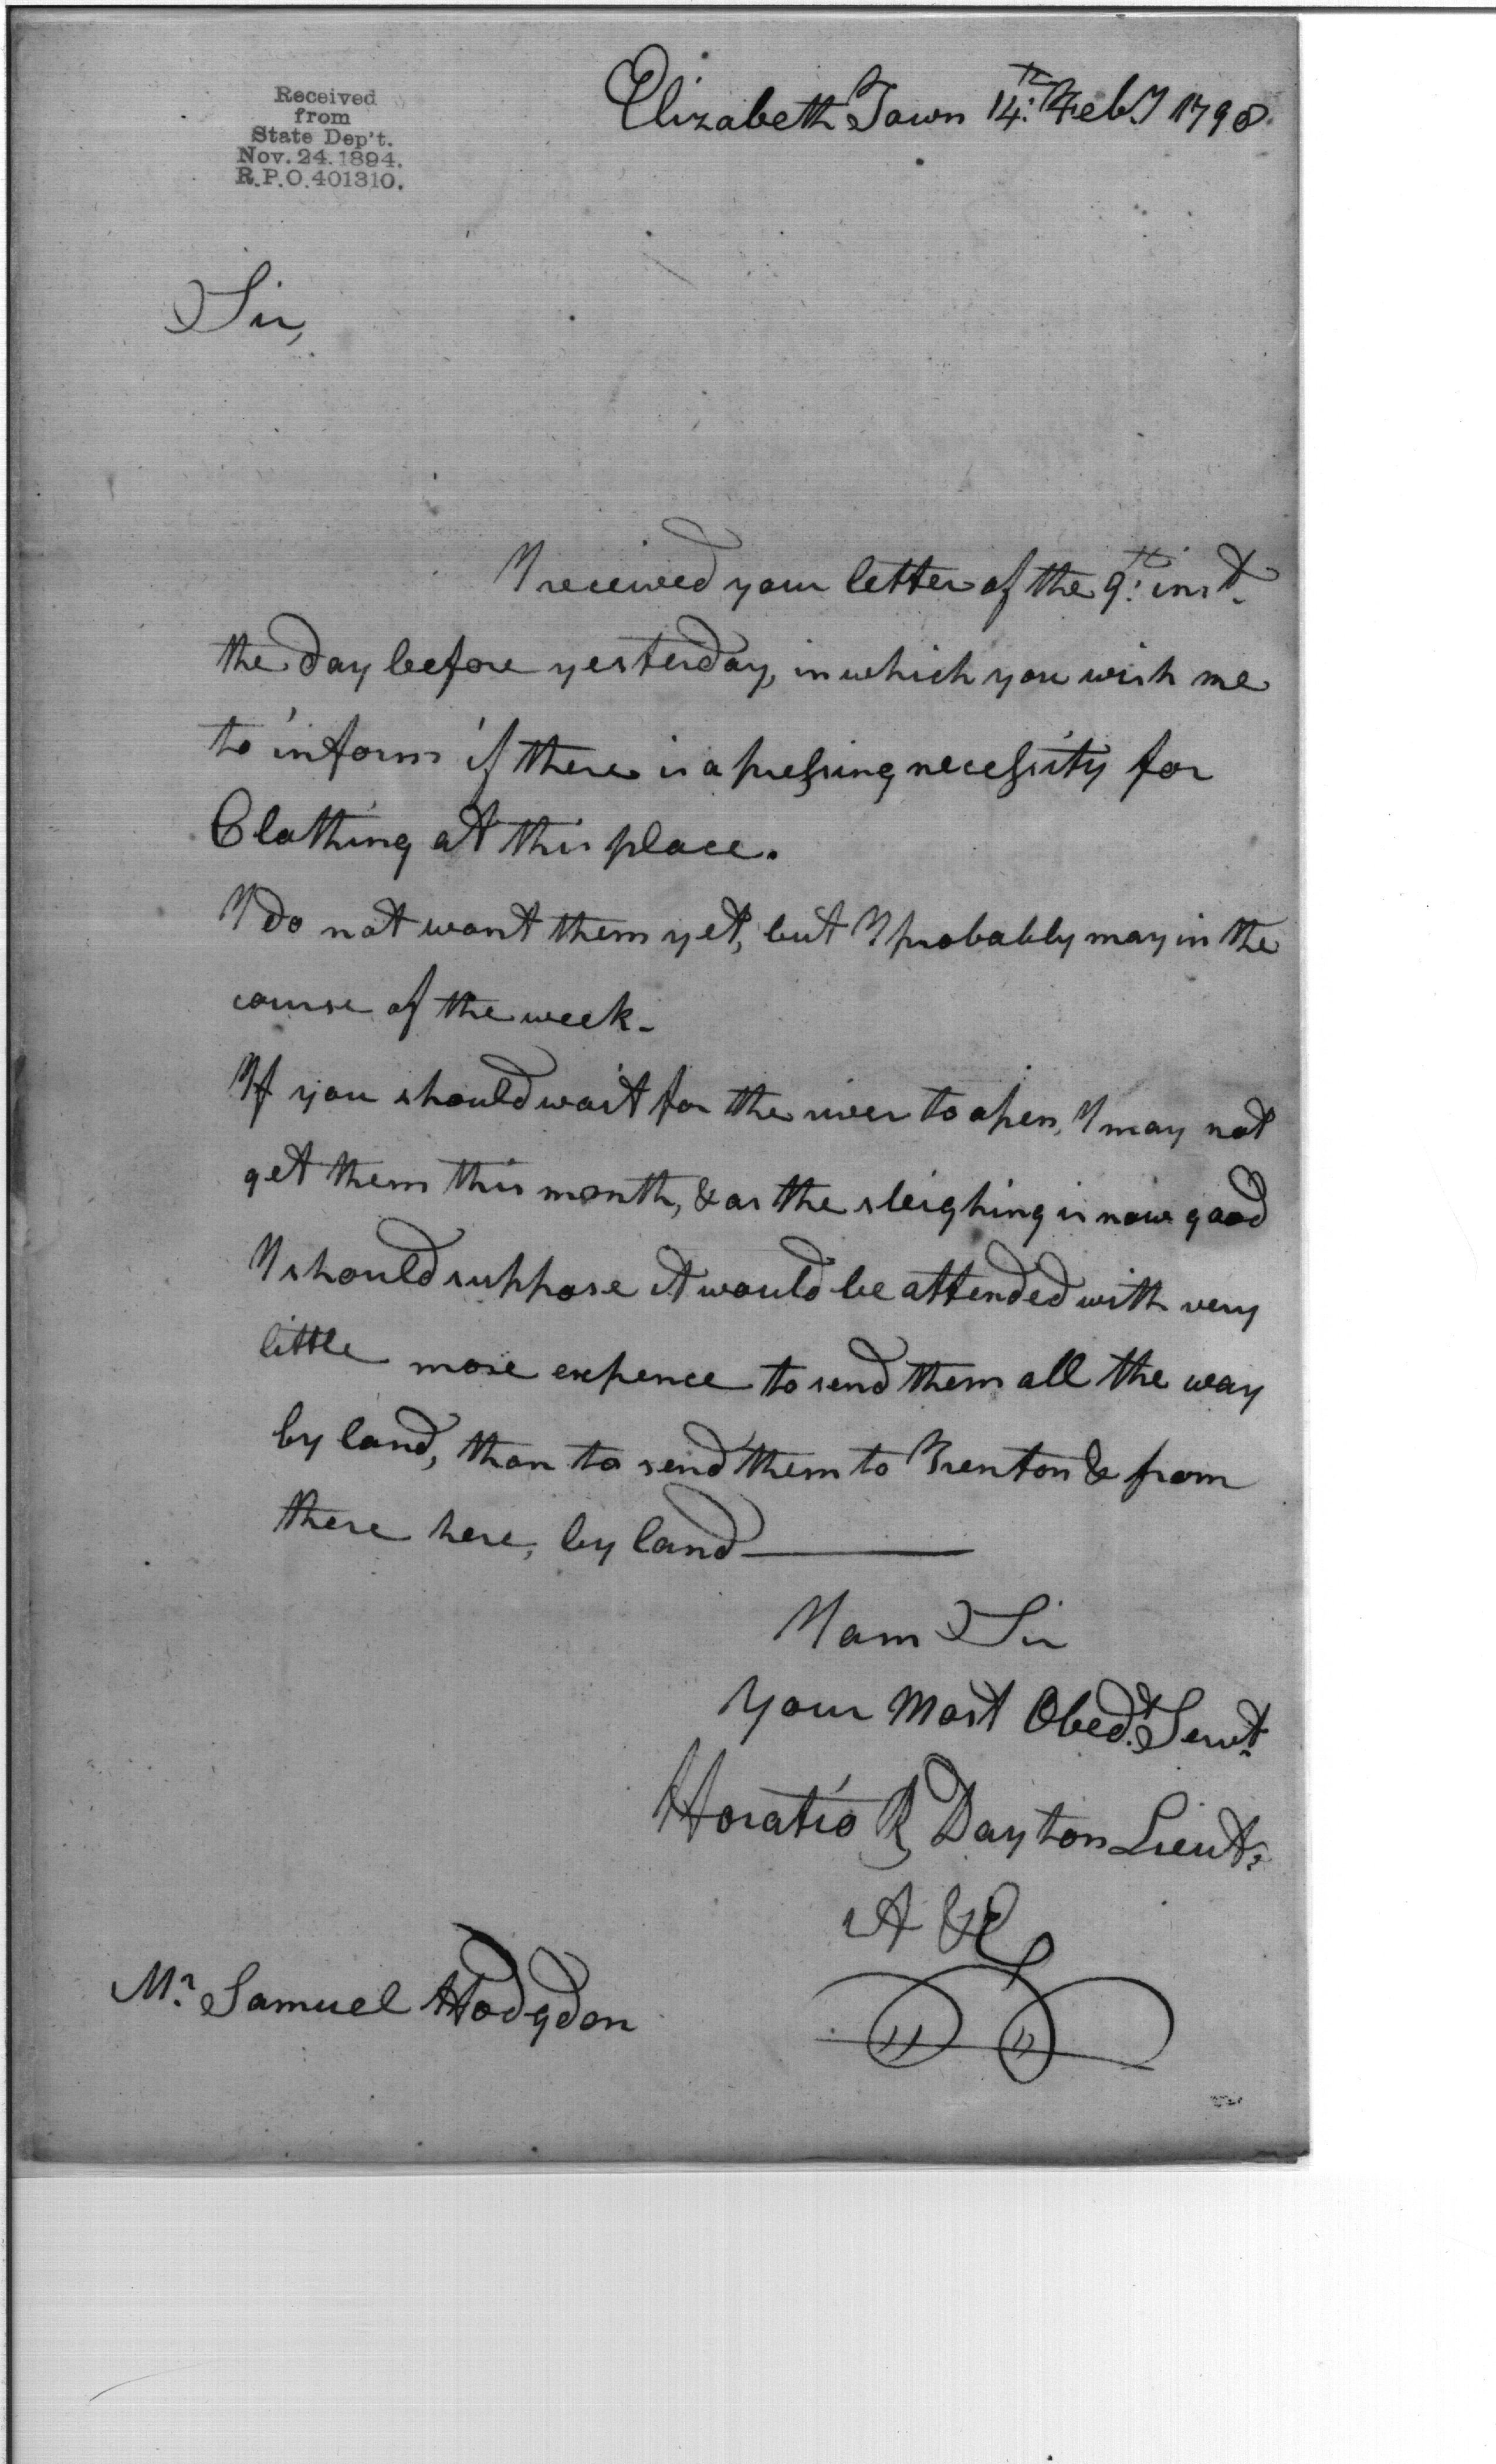 Received
from
State Dep't.
Nov. 24. 1894.
R.P.O. 401310.
Elizabeth Town 14:th Feby 1798.
Sir,
I received your letter of the 9:th inst.
the day before yesterday, in which you wish me
to inform if there is a pressing necessity for
Clothing at this place.
I do not want them yet, but I probably may in the
course of the week-
If you should wait for the river to open, I may not
get them this month, & as the sleighing is now good
I should suppose it would be attended with very
little more expence to send them all the way
by land, than to send them to Trenton & from
there here, by land—
I am Sir
Your Most Obed.t Servt.
Horatio R Dayton Lieut.
A & E
Mr. Samuel Hodgdon